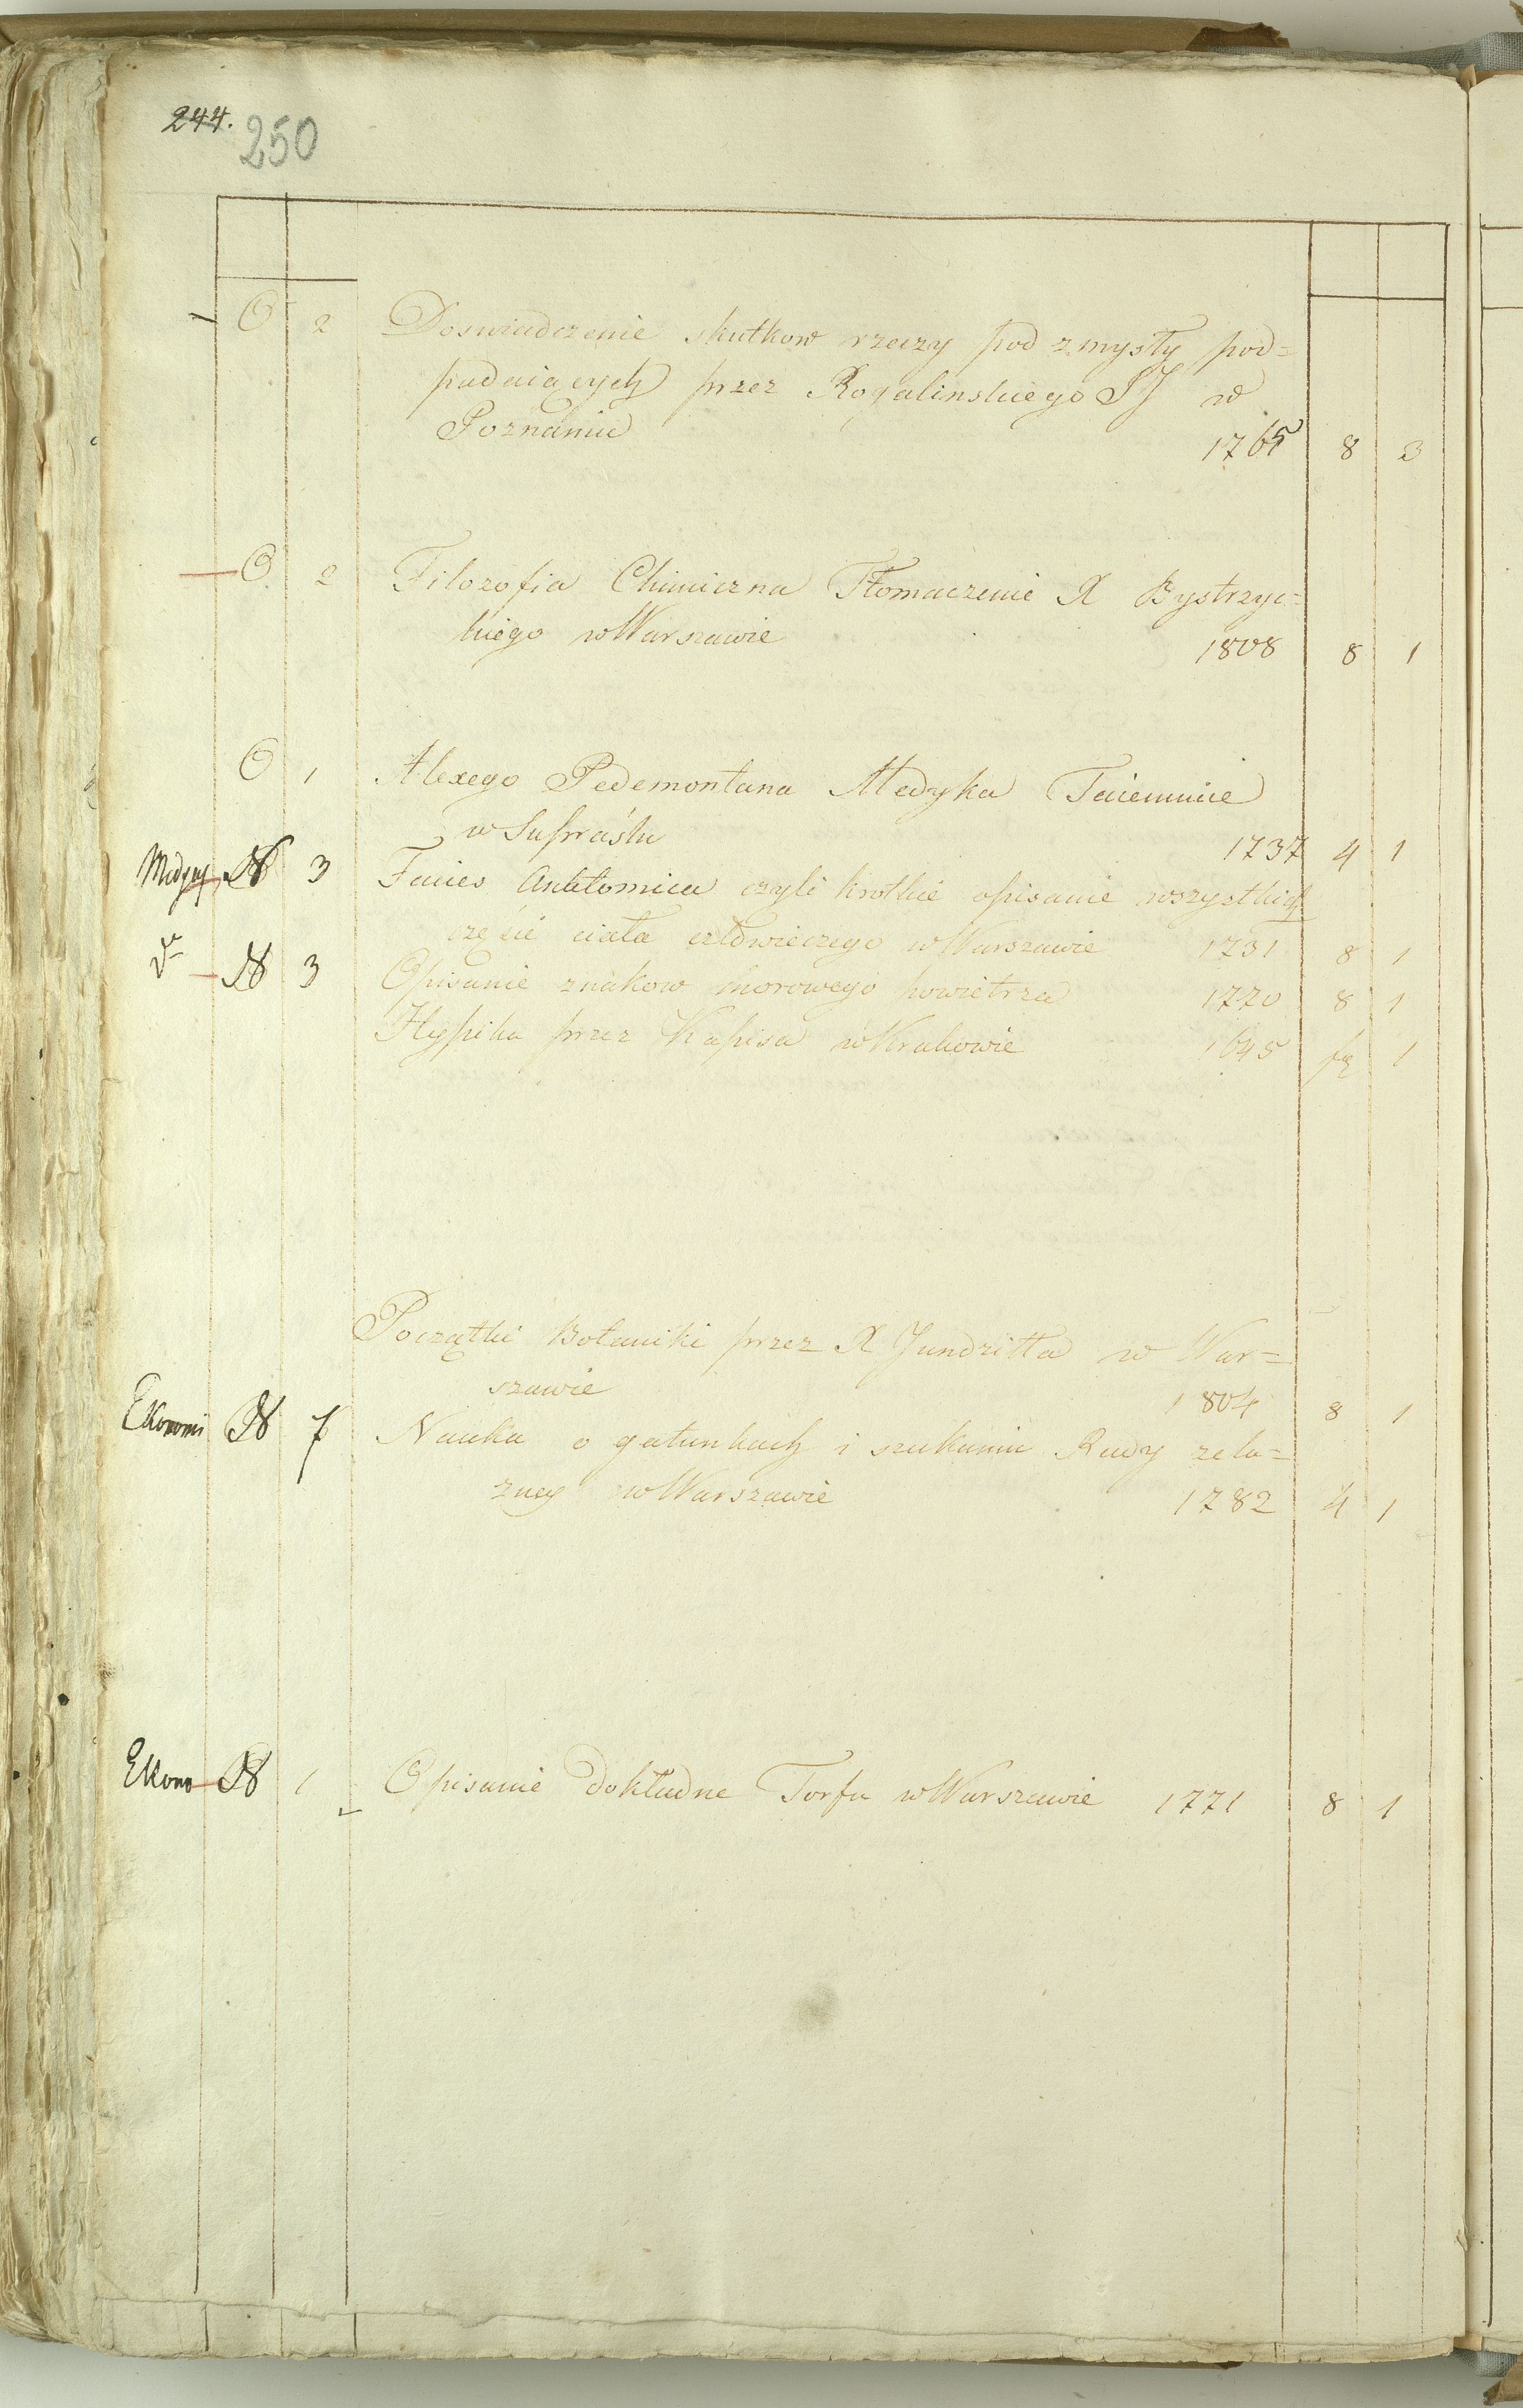 244. 250
O 2 Doswiadczenie skutkow rzeczy pod zmysły pod=
padaiących przez Rogalinskiego SJ w
Poznaniu 1765 8 3
O 2 Filozofia Chimiczna Tłomaczenie X Bystrzyc=
kiego w Warszawie 1808 8 1
O 1 Alexego Pedemontana Medyka Taiemnice
w Supraślu 1737 4 1
N 3 Facies Anatomica czyli krotkie opisanie wszystkich
części ciała człowieczego w Warszawie 1731 8 1
N 3 Opisanie znakow morowego powietrza 1770 8 1
Hyppika przez w Krakowie 1645 1
Początki Botaniki przez X Jundziłła w War=
szawie 1804 8 1
Ekonomi N 7 Nauka o gatunkach i szukaniu Rudy zela=
zney w Warszawie 1782 4 1
Ekono N 1 Opisanie dokładne Torfu w Warszawie 1771 8 1